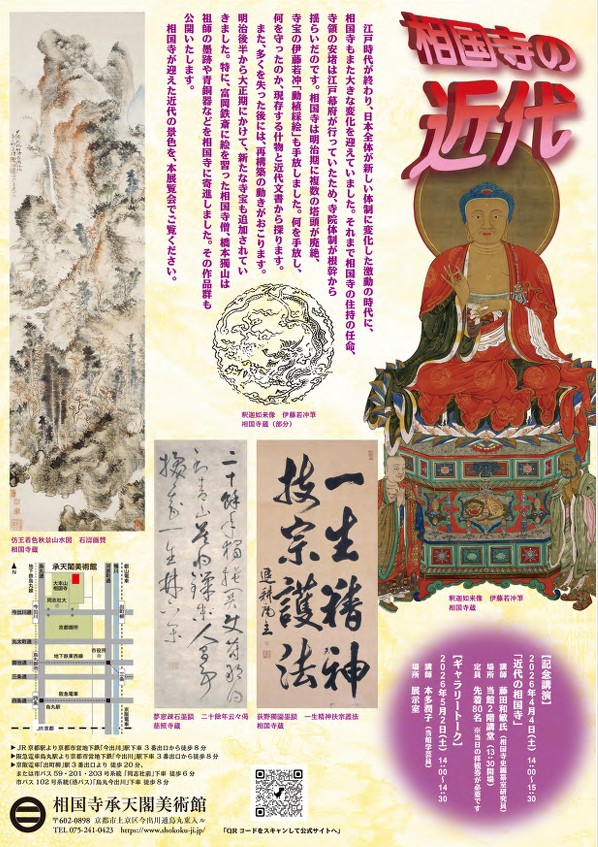 相国寺の
近代
江戸時代が終わり、日本全体が新しい体制に変化した激動の時代に、
相国寺もまた大きな変化を迎えていました。それまで相国寺の住持の任命、
寺領の安堵は江戸幕府が行っていたため、寺院体制が根幹から
揺らいだのです。相国寺は明治期に複数の塔頭が廃絶、
寺宝の伊藤若冲「動植綵絵」も手放しました。何を手放し、
何を守ったのか、現存する什物と近代文書から探ります。
また、多くを失った後には、再構築の動きがおこります。
明治後半から大正期にかけて、新たな寺宝も追加されてい
きました。特に、富岡鉄斎に絵を習った相国寺僧、橋本獨山は
祖師の墨跡や青銅器などを相国寺に寄進しました。その作品群も
公開いたします。
相国寺が迎えた近代の景色を、本展覧会でご覧ください。
釈迦如来像 伊藤若冲筆
相国寺蔵(部分)
一生精神
技宗護法
釈迦如来像 伊藤若冲筆
相国寺蔵
倣王着色秋景山水図 石濤画賛
相国寺蔵
夢窓疎石墨蹟 二十餘年云々偈
慈照寺蔵
荻野獨園墨蹟 一生精神扶宗護法
相国寺蔵
【記念講演】
2026年4月4日(土) 14:00〜15:30
「近代の相国寺」
講師 藤田和敏氏(相国寺史編纂室研究員)
場所 当館2階講堂(13:30開場)
定員 先着80名 ※当日の拝観券が必要です
【ギャラリートーク】
2026年5月2日(土) 14:00〜14:30
講師 本多潤子(当館学芸員)
場所 展示室
承天閣美術館
大本山
相国寺
同志社大
今出川通
今出川
出町柳
京都御所
丸太町通
地下鉄東西線
市役所
御池通
三条通
四条通
阪急電車
烏丸
京阪電車
JR 京都
▶JR 京都駅より京都市営地下鉄「今出川」駅下車 3番出口から徒歩8分
▶阪急電車烏丸駅より京都市営地下鉄「今出川」駅下車 3番出口から徒歩8分
▶京阪電車「出町柳」駅 3番出口より 徒歩20分、
または市バス59・201・203号系統「同志社前」下車 徒歩6分
市バス102号系統(急バス)「烏丸今出川」下車 徒歩8分
相国寺承天閣美術館
〒602-0898 京都市上京区今出川通烏丸東入ル
TEL 075-241-0423 https://www.shokoku-ji.jp/
「QRコードをスキャンして公式サイトへ」